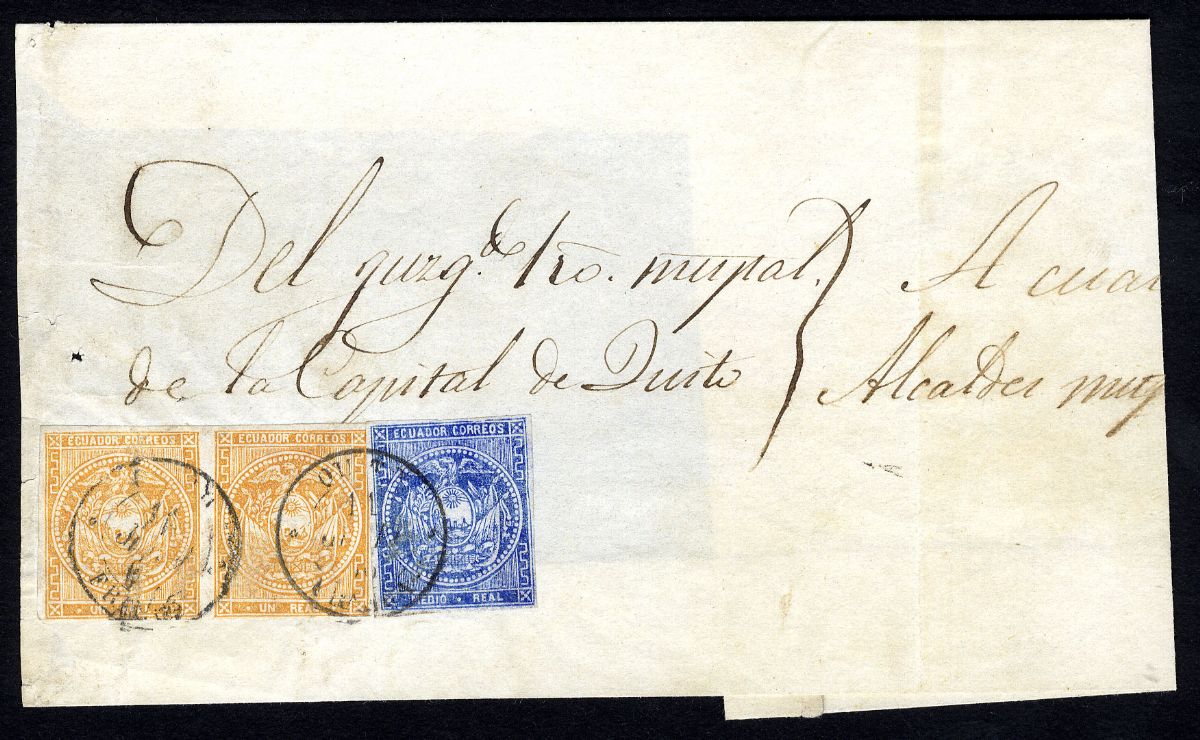 Del juzg.do 1ro. mupal.
de la Capital de Quito
A cuar
Alcaldes mup
ECUADOR CORREOS
UN
ECUADOR CORREOS
UN REAL
ECUADOR CORREOS
MEDIO REAL